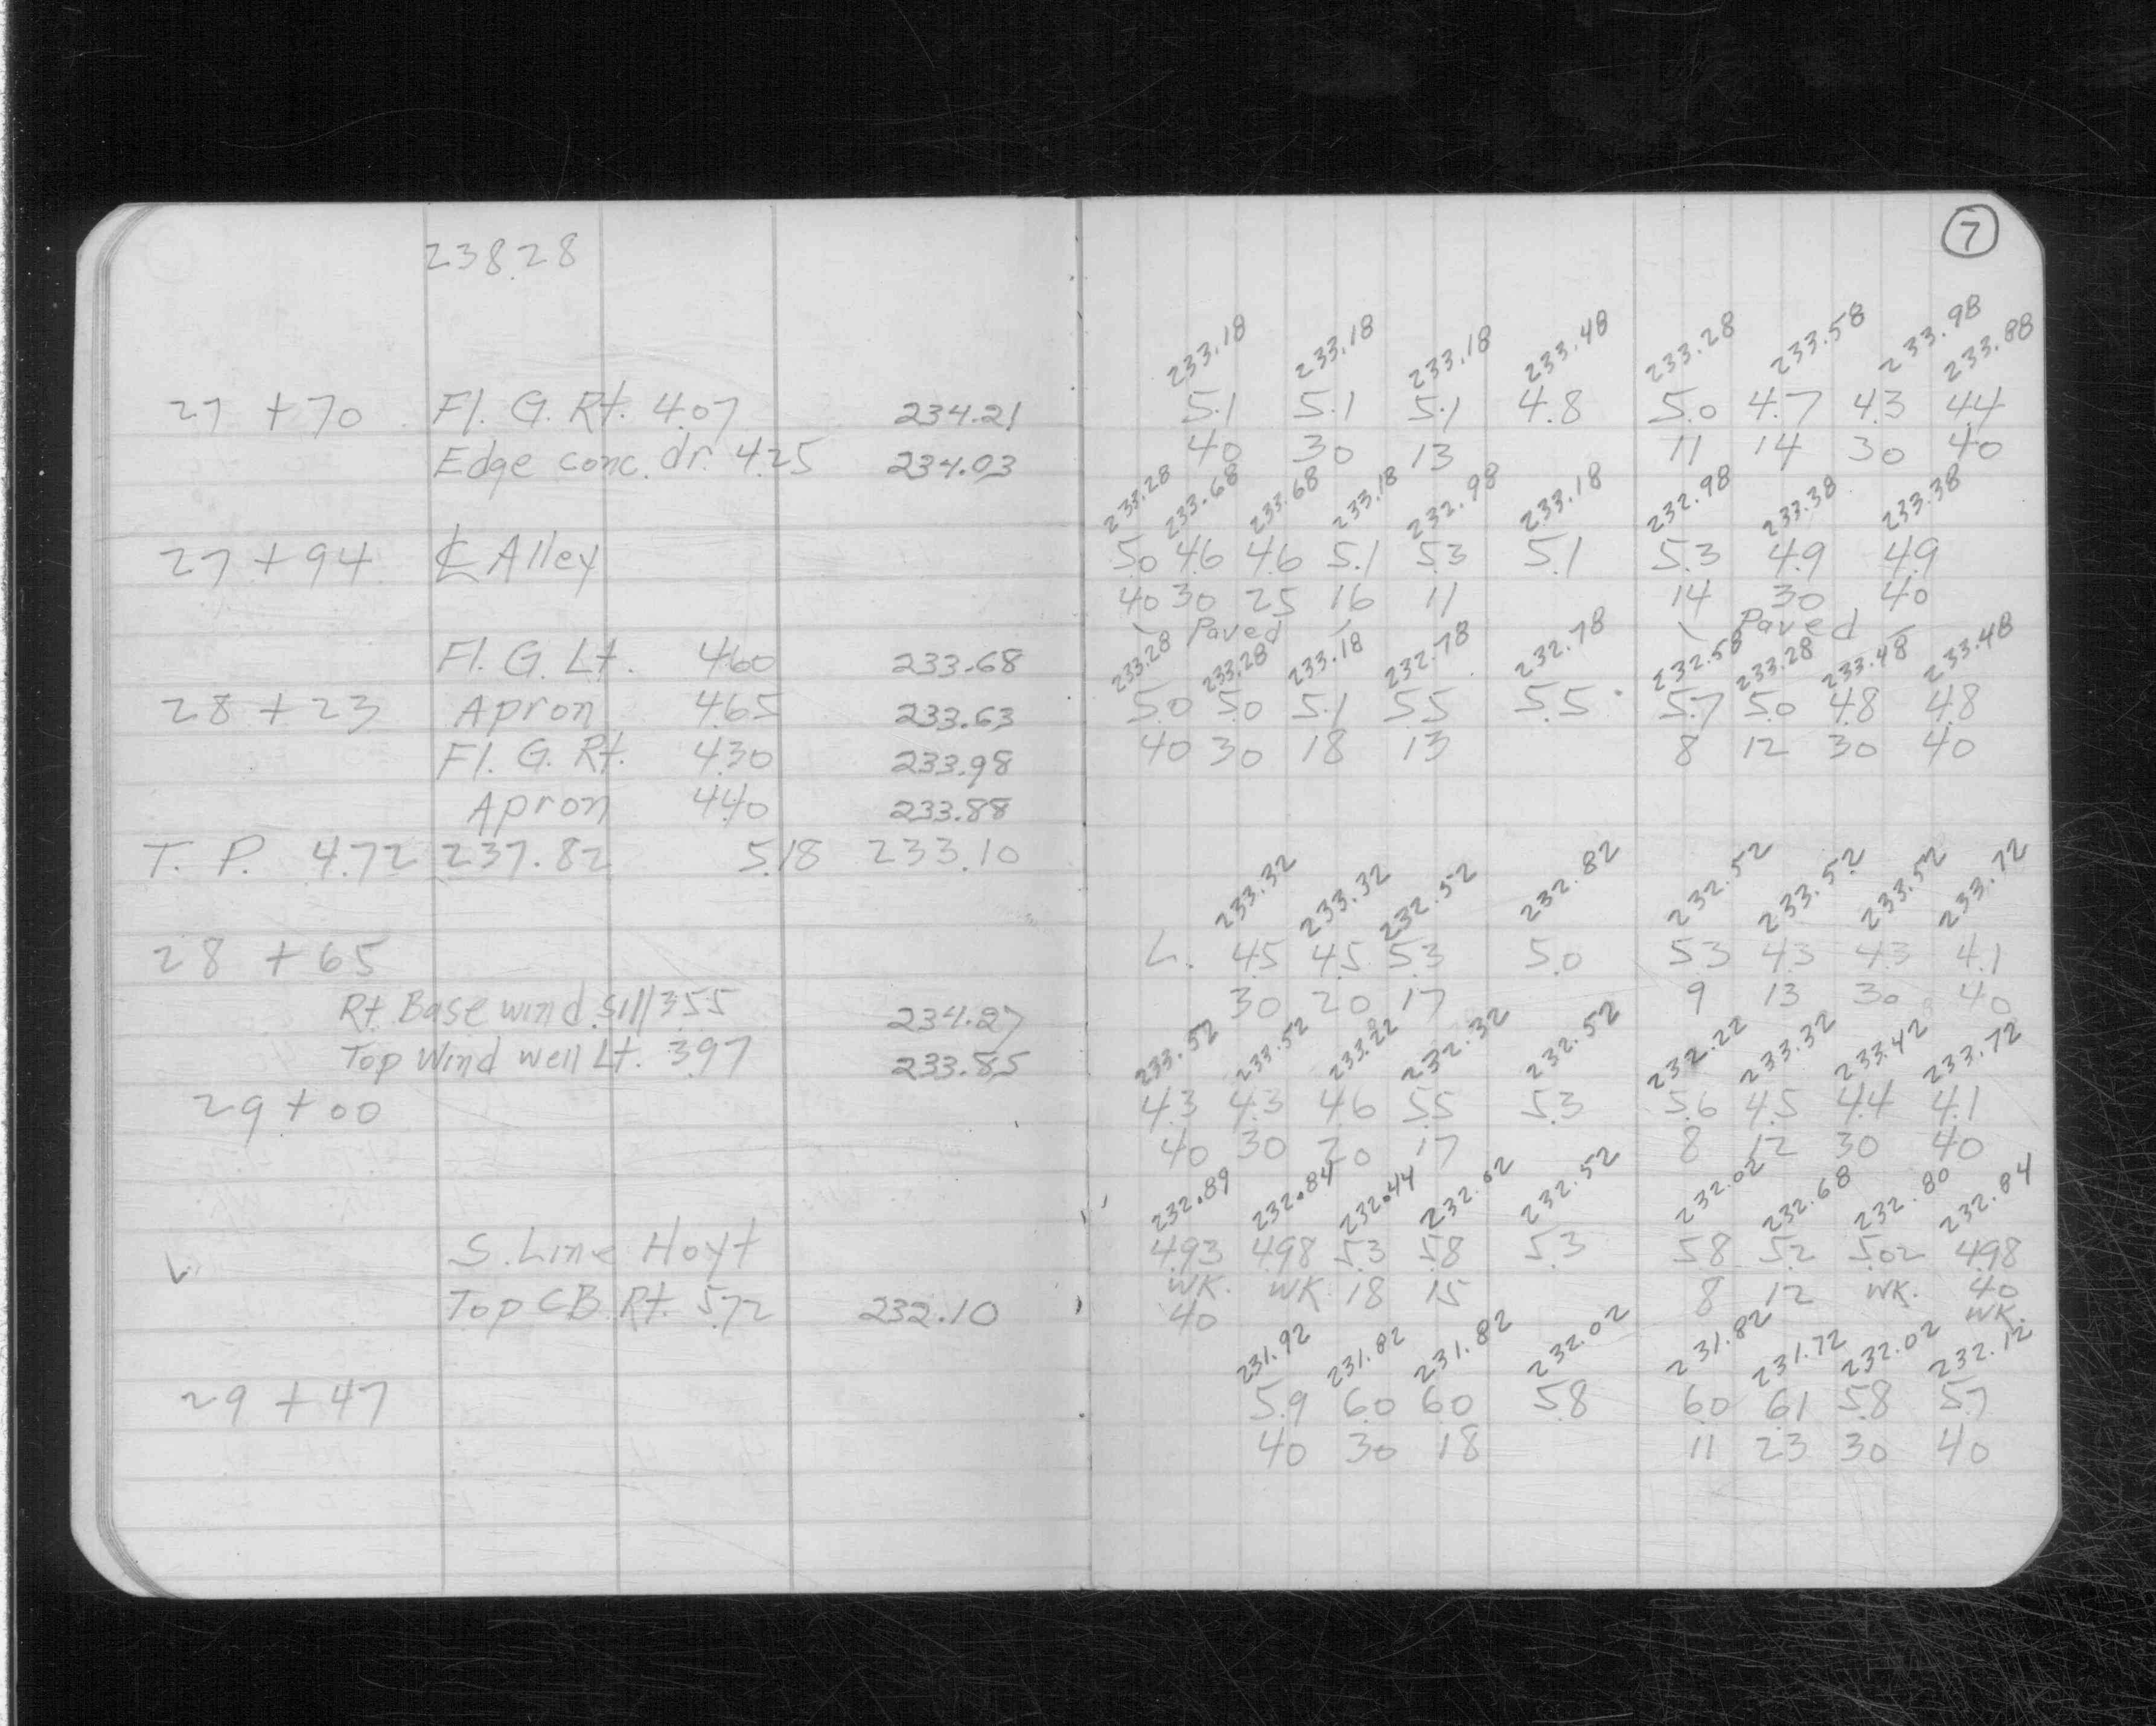 238.28
27 + 70 Fl. G. Rt. 4.07 234.21
Edge conc. dr. 4.25 234.03
27 + 94 ℄ Alley
Fl. G. Lt. 4.60 233.68
28 + 23 Apron 4.65 233.63
Fl. G. Rt. 4.30 233.98
Apron 4.40 233.88
T. P. 4.72 237.82 5.18 233.10
28 + 65
Rt. Base wind. sill 3.55 234.27
Top Wind well Lt. 3.97 233.85
29 + 00
S. Line Hoyt
Top CB. Rt. 5.72 232.10
29 + 47
7
233.18 233.18 233.18 233.48 233.28 233.58 233.98 233.88
5.1 5.1 5.1 4.8 5.0 4.7 4.3 4.4
40 30 13 11 14 30 40
233.28 233.68 233.68 233.18 232.98 233.18 232.98 233.38 233.38
5.0 4.6 4.6 5.1 5.3 5.1 5.3 4.9 4.9
40 30 25 16 11 14 30 40
Paved Paved
233.28 233.28 233.18 232.78 232.78 232.58 233.28 233.48 233.48
5.0 5.0 5.1 5.5 5.5 5.7 5.0 4.8 4.8
40 30 18 13 8 12 30 40
233.32 233.32 232.52 232.82 232.52 233.52 233.52 233.72
L. 4.5 4.5 5.3 5.0 5.3 4.3 4.3 4.1
30 20 17 9 13 30 40
233.52 233.52 233.22 232.32 232.52 232.22 233.32 233.42 233.72
4.3 4.3 4.6 5.5 5.3 5.6 4.5 4.4 4.1
40 30 20 17 8 12 30 40
232.89 232.84 232.44 232.02 232.52 232.02 232.68 232.80 232.84
4.93 4.98 5.3 5.8 5.3 5.8 5.2 5.02 4.98
WK. WK 18 15 8 12 WK. 40
40 WK.
231.92 231.82 231.82 232.02 231.82 231.72 232.02 232.12
5.9 6.0 6.0 5.8 6.0 6.1 5.8 5.7
40 30 18 11 23 30 40